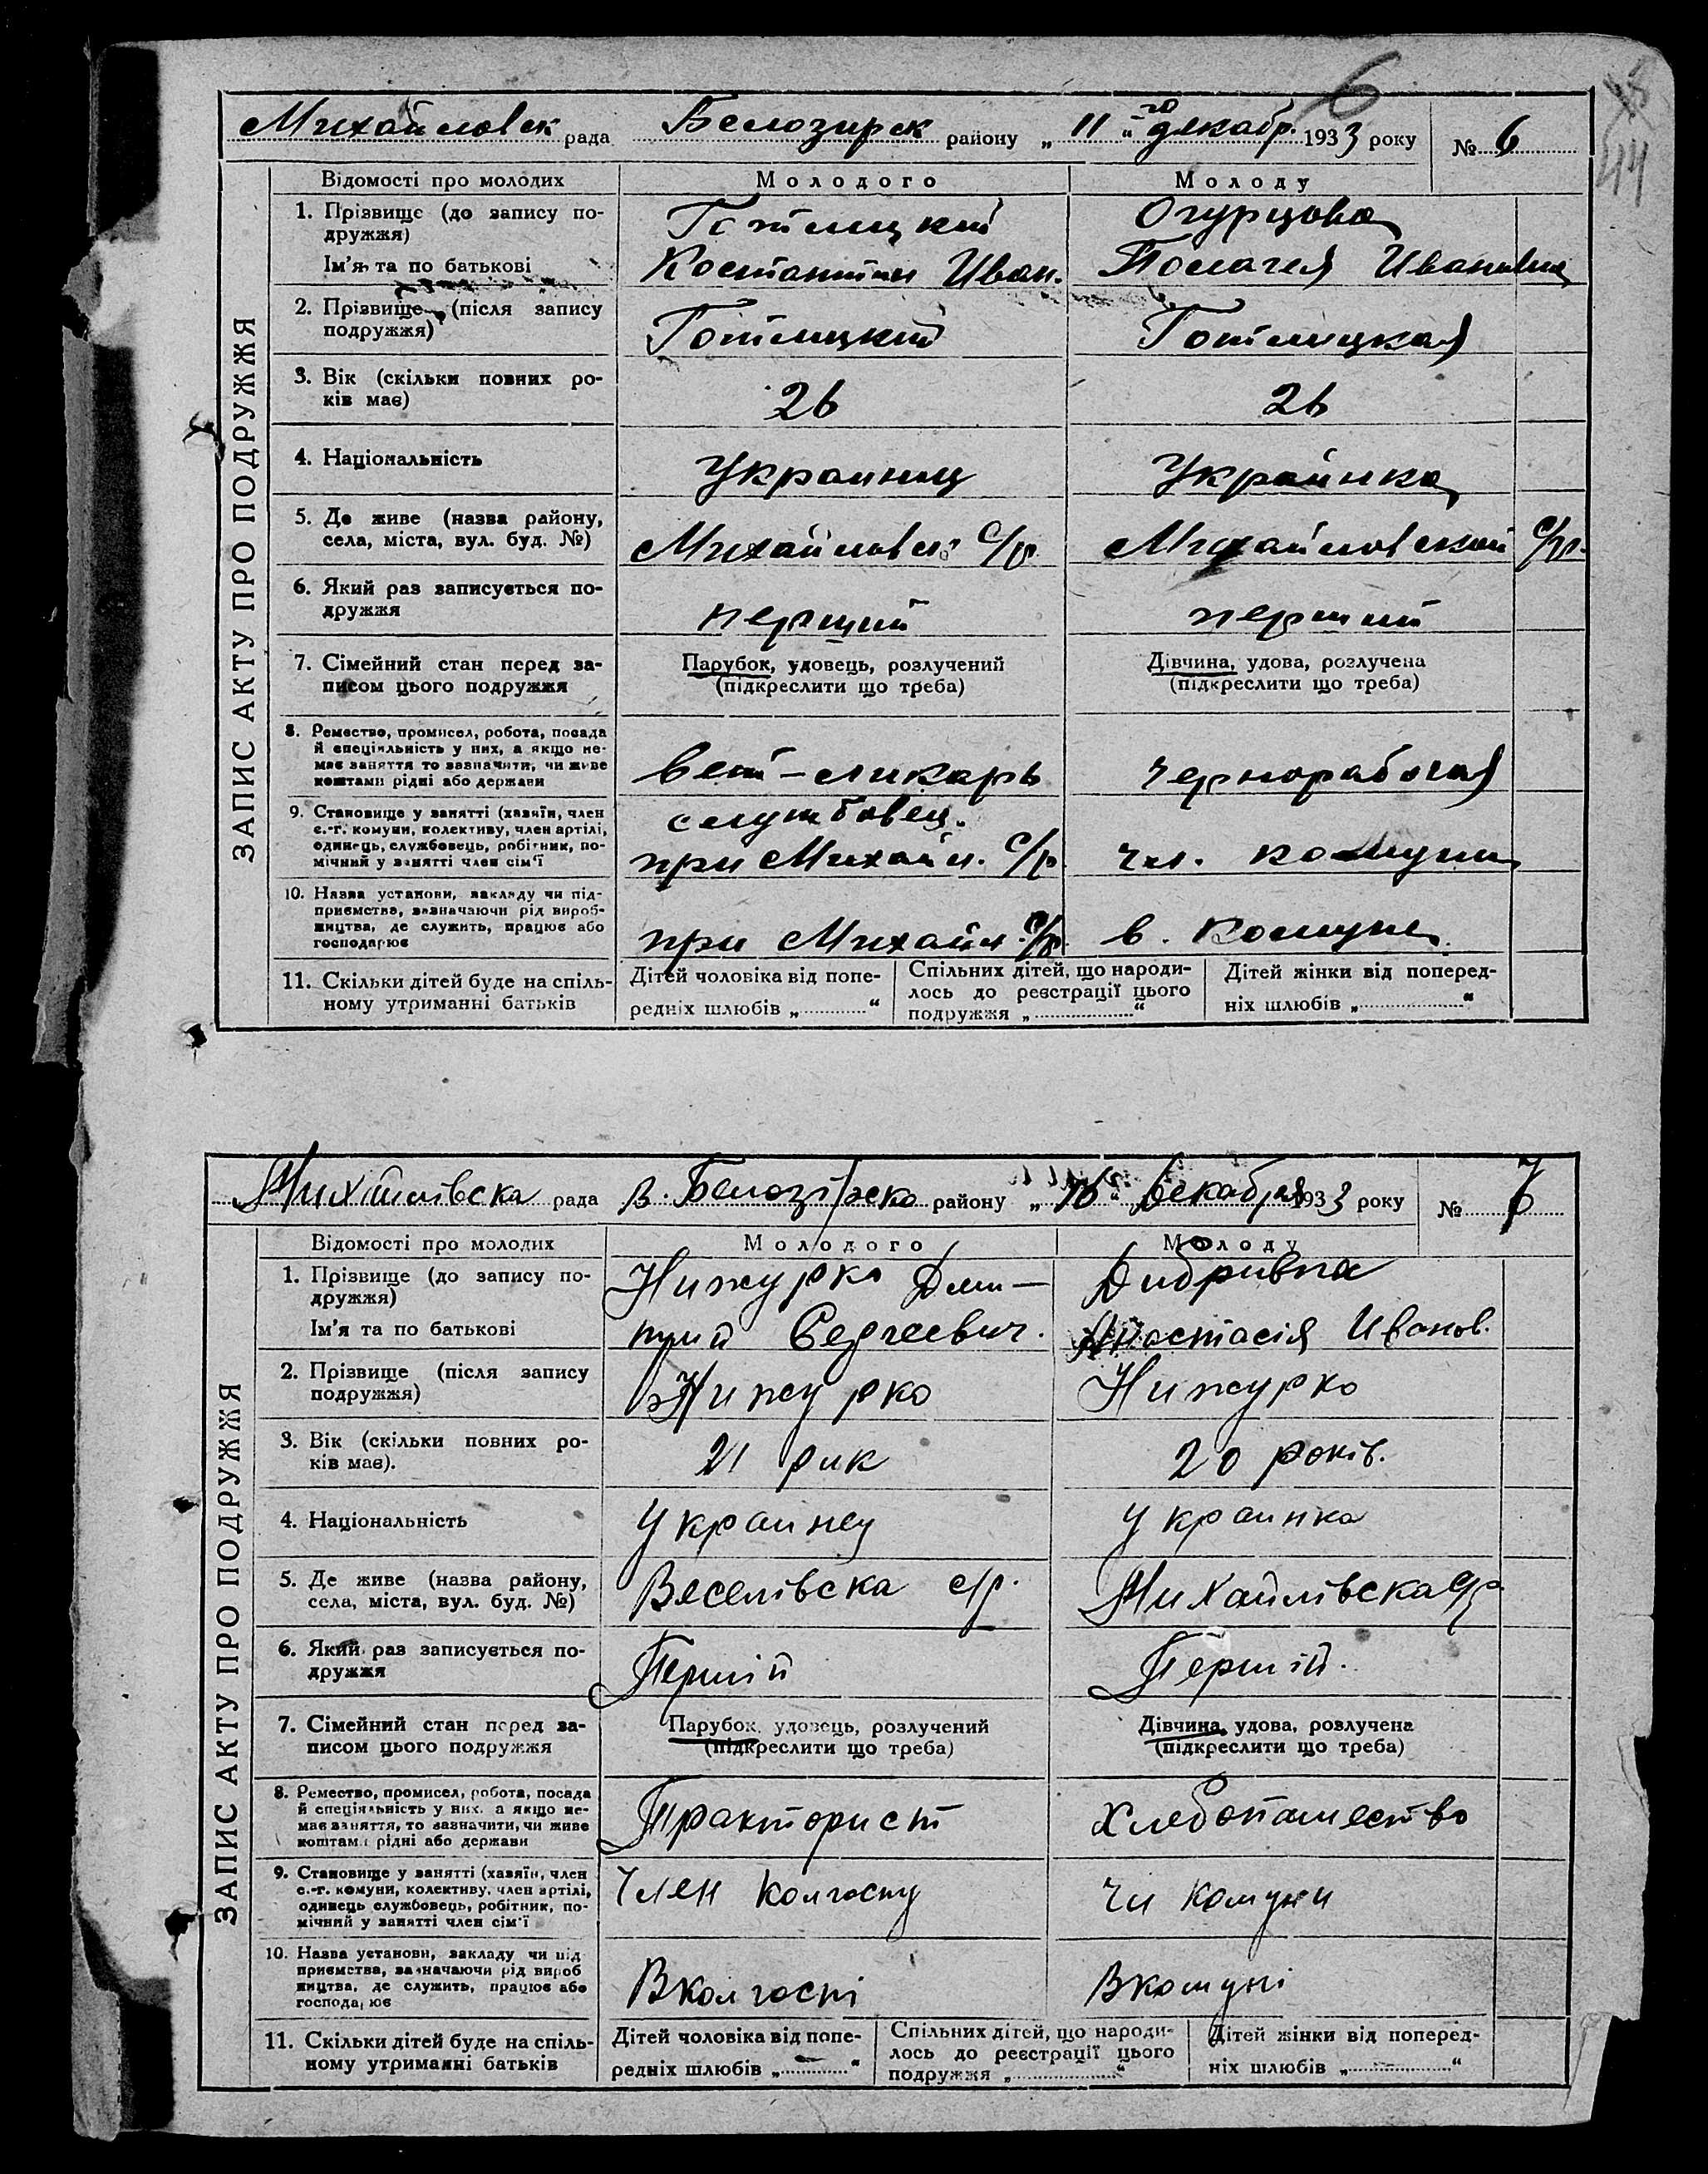 6
44
Михайловск рада Белозирск району „ 11 “ го декабр. 1933 року № 6
ЗАПИС АКТУ ПРО ПОДРУЖЖЯ
Відомості про молодих Молодого Молоду
1. Прізвище (до запису по- Готлицкий Огурцова
дружжя)
Ім'я та по батькові Костантин Иван. Пелагея Ивановна
2. Прізвище (після запису Готлицкий Готлицкая
подружжя)
3. Вік (скільки повних ро- 26 26
ків має)
4. Національність Украинец Украинка
5. Де живе (назва району, Михайловск. С/р. Михайловской С/р.
села, міста, вул. буд. №)
6. Який раз записується по- перший перший
дружжя
7. Сімейний стан перед за- Парубок, удовець, розлучений Дівчина, удова, розлучена
писом цього подружжя (підкреслити що треба) (підкреслити що треба)
8. Ремество, промисел, робота, посада
й спеціяльність у них, а якщо не-
має заняття то зазначити, чи живе вет-ликарь чернорабочая
коштами рідні або держави
9. Становище у занятті (хазяїн, член службовец.
с.-г. комуни, колективу, член артілі,
одинець, службовець, робітник, по- при Михайл. С/р. чл. комуни
мічний у занятті член сім'ї
10. Назва установи, закладу чи під-
приємства, зазначаючи рід вироб-
ництва, де служить, працює або при Михайл. С/р. в. Комуне
господарює
11. Скільки дітей буде на спіль- Дітей чоловіка від попе- Спільних дітей, що народи- Дітей жінки від поперед-
ному утриманні батьків редніх шлюбів „ “ лось до реєстрації цього ніх шлюбів „ “
подружжя „ “
Михайлівска рада В. Белозірско району „ 16 “ декабря 1933 року № 7
ЗАПИС АКТУ ПРО ПОДРУЖЖЯ
Відомості про молодих Молодого Молоду
1. Прізвище (до запису по- Нижурко Дми- Дибривна
дружжя)
Ім'я та по батькові трий Сергеевич. Анастасія Иванов.
2. Прізвище (після запису Нижурко Нижурко
подружжя)
3. Вік (скільки повних ро- 21 рик 20 років.
ків має).
4. Національність Украинец Украинка
5. Де живе (назва району, Веселівска с/р. Михайлівска с/р
села, міста, вул. буд. №)
6. Який раз записується по- Перший Перший.
дружжя
7. Сімейний стан перед за- Парубок, удовець, розлучений Дівчина, удова, розлучена
писом цього подружжя (підкреслити що треба) (підкреслити що треба)
8. Ремество, промисел, робота, посада
й спеціяльність у них. а якщо не-
має заняття, то зазначити, чи живе Тракторист Хлебопашество
коштами рідні або держави
9. Становище у занятті (хазяїн, член
с.-г. комуни, колективу, член артілі, Член колгоспу Чл комуни
одинець службовець, робітник, по-
мічний у занятті член сім'ї
10. Назва установи, закладу чи під
приємства, зазначаючи рід вироб
ництва, де служить, працює або Вколгоспі Вкомуні
господарює
11. Скільки дітей буде на спіль- Дітей чоловіка від попе- Спільних дітей, що народи- Дітей жінки від поперед-
ному утриманні батьків редніх шлюбів „ “ лось до реєстрації цього ніх шлюбів „ “
подружжя „ “